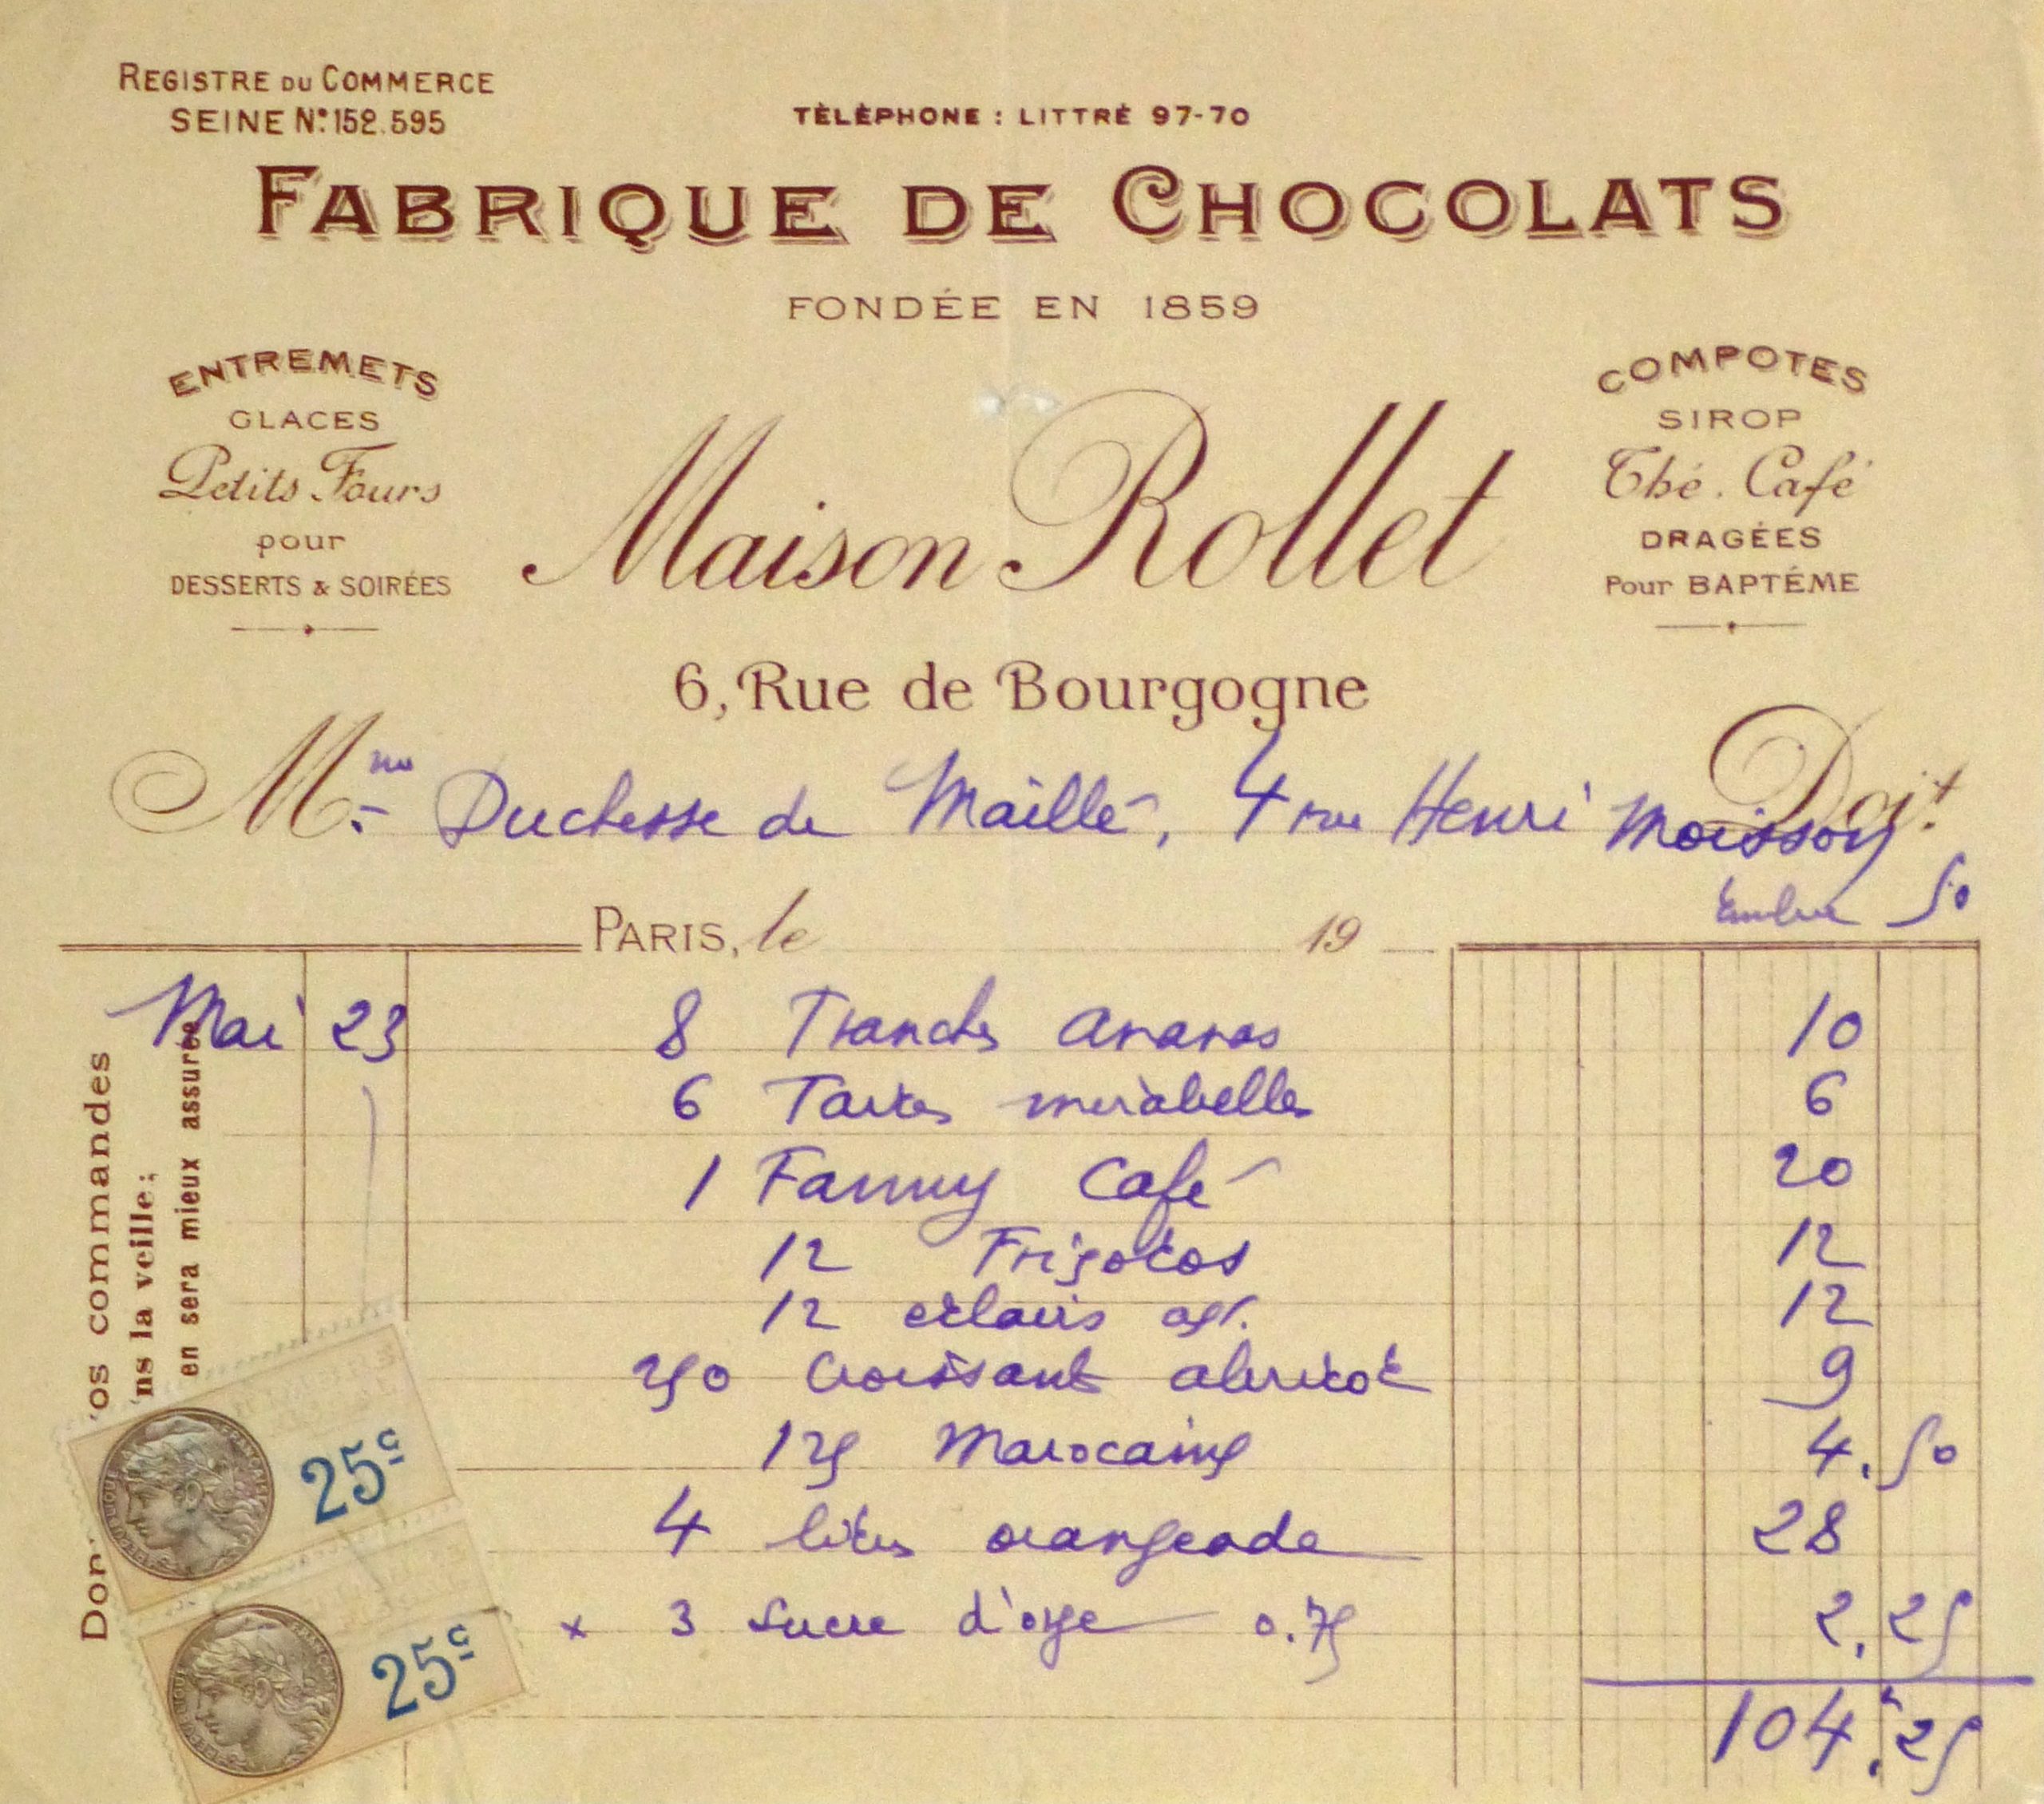 REGISTRE DU COMMERCE
SEINE N° 152.595
TÈLÈPHONE : LITTRÈ 97-70
FABRIQUE DE CHOCOLATS
FONDÉE EN 1859
ENTREMETS
GLACES
Petits Fours
pour
DESSERTS & SOIRÉES
Maison Rollet
COMPOTES
SIROP
Thé. Café
DRAGÉES
Pour BAPTÉME
6, Rue de Bourgogne
Mme Duchesse de Maillé, 4 rue Henri Moisson Doit.
50
PARIS, le 19
Mai 23 8 Tranches ananas 10
6 Tartes mirabelles 6
1 Fanny Café 20
12 Frigolos 12
12 eclairs 12
250 Croissant abricot 9
125 Marocains 4.50
4 litres orangeade 28
x 3 Sucre d'orge 0.75 2.25
104.25
os commandes
ns la veille;
en sera mieux assurée
25c
25c